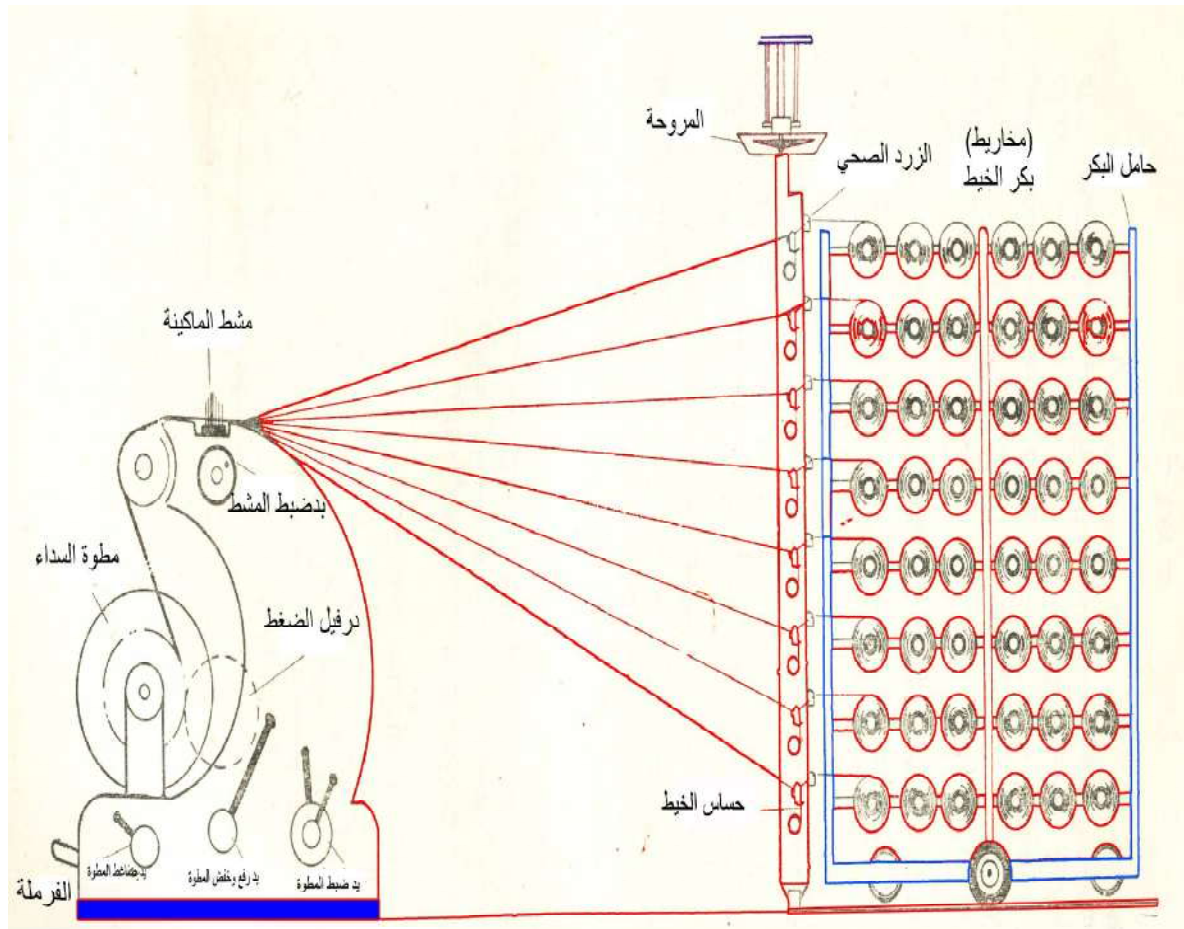 المروحة
الزرد الصحي
(مخاريط)
بكر الخيط
حامل البكر
مشط الماكينة
يدضبط المشط
مطوة السداء
درفيل الضغط
حساس الخيط
يد ضاغط المطوة
يد رفع وخفض المطوة
يد ضبط المطوة
الفرملة